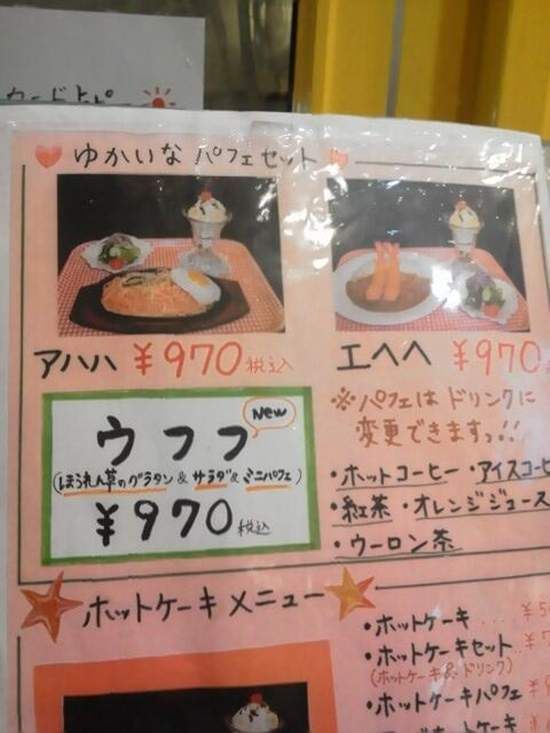 カードトピー
ゆかいな パフェセット
アハハ ¥970 税込
エヘヘ ¥970
New
ウフフ
(ほうれん草のグラタン & サラダ & ミニパフェ)
¥970 税込
※パフェは ドリンクに
変更できますっ!!
・ホットコーヒー ・アイスコーヒ
・紅茶 ・オレンジジュース
・ウーロン茶
ホットケーキ メニュー
・ホットケーキ .... ¥5
・ホットケーキセット ¥7
(ホットケーキ & ドリンク)
・ホットケーキパフェ